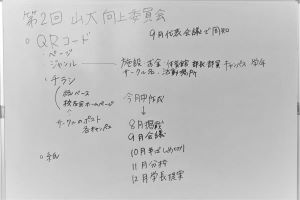 第2回 山大向上委員会
○QRコード
9月代表会議で周知
・ページ
・ジャンル
施設 お金 体育館 部長・部員 キャンパス 学年
サークル名・活動場所
・チラシ
紙ベース
校友会ホームページ
サークルのポスト
各キャンパス
今月中作成
↓
8月掲示
9月会議
10月
11月分析
12月学長提案